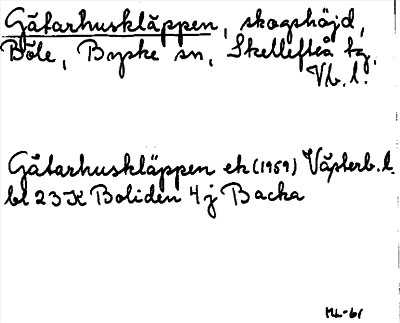 Gåtarhuskläppen, skogshöjd,
Böle, Byske sn, Skellefteå tg,
Vb. l.
Gåtarhuskläppen ek (1959) Västerb. l.
bl 23 K Boliden 4 j Backa
ML-61